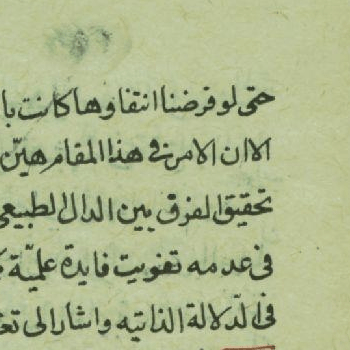 حتى لو فرضنا انتفاوها كانت با
الا ان الامر فى هذا المقام هيّن
تحقيق الفرق بين الدال الطبيعى
فى عدمه تفويت فايدة علميّة
فى الدلالة الذاتيه واشار الى